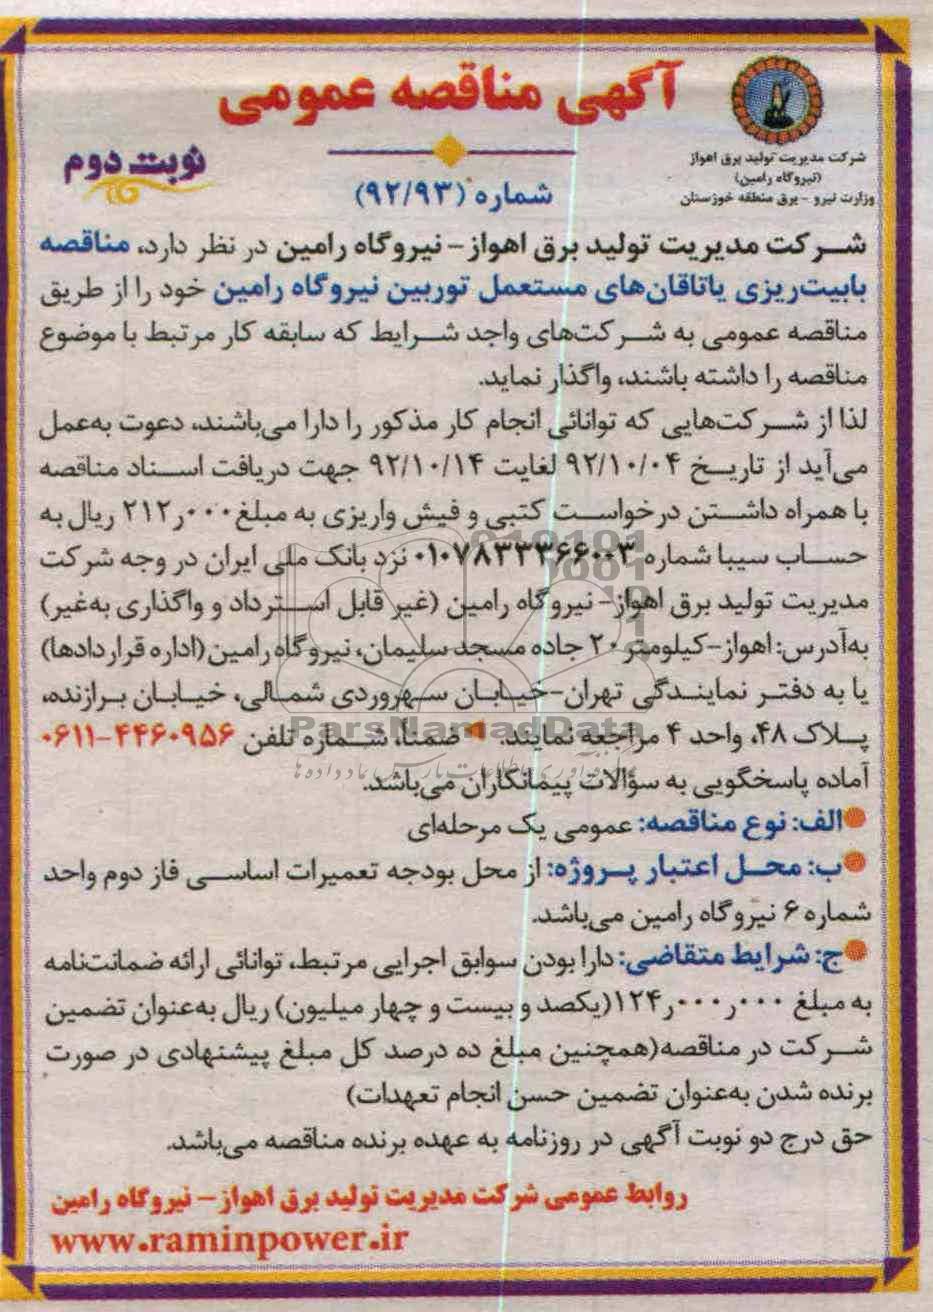 آگهی مناقصه عمومی
شرکت مدیریت تولید برق اهواز
(نیروگاه رامین)
وزارت نیرو - برق منطقه خوزستان
نوبت دوم
شماره (۹۲/۹۳)
شرکت مدیریت تولید برق اهواز- نیروگاه رامین در نظر دارد، مناقصه
بابیت‌ریزی یاتاقان‌های مستعمل توربین نیروگاه رامین خود را از طریق
مناقصه عمومی به شرکت‌های واجد شرایط که سابقه کار مرتبط با موضوع
مناقصه را داشته باشند، واگذار نماید.
لذا از شرکت‌هایی که توانائی انجام کار مذکور را دارا می‌باشند، دعوت به‌عمل
می‌آید از تاریخ ۹۲/۱۰/۰۴ لغایت ۹۲/۱۰/۱۴ جهت دریافت اسناد مناقصه
با همراه داشتن درخواست کتبی و فیش واریزی به مبلغ ۲۱۲٫۰۰۰ ریال به
حساب سیبا شماره ۰۱۰۷۸۳۳۳۶۶۰۰۳ نزد بانک ملی ایران در وجه شرکت
مدیریت تولید برق اهواز- نیروگاه رامین (غیر قابل استرداد و واگذاری به‌غیر)
به‌آدرس: اهواز-کیلومتر ۲۰ جاده مسجد سلیمان، نیروگاه رامین (اداره قراردادها)
یا به دفتر نمایندگی تهران-خیابان سهروردی شمالی، خیابان برازنده،
پلاک ۴۸، واحد ۴ مراجعه نمایند. ضمناً، شماره تلفن ۴۴۶۰۹۵۶-۰۶۱۱
آماده پاسخگویی به سؤالات پیمانکاران می‌باشد.
الف: نوع مناقصه: عمومی یک مرحله‌ای
ب: محل اعتبار پروژه: از محل بودجه تعمیرات اساسی فاز دوم واحد
شماره ۶ نیروگاه رامین می‌باشد.
ج: شرایط متقاضی: دارا بودن سوابق اجرایی مرتبط، توانائی ارائه ضمانت‌نامه
به مبلغ ۱۲۴٫۰۰۰٫۰۰۰ (یکصد و بیست و چهار میلیون) ریال به‌عنوان تضمین
شرکت در مناقصه(همچنین مبلغ ده درصد کل مبلغ پیشنهادی در صورت
برنده شدن به‌عنوان تضمین حسن انجام تعهدات)
حق درج دو نوبت آگهی در روزنامه به عهده برنده مناقصه می‌باشد.
روابط عمومی شرکت مدیریت تولید برق اهواز- نیروگاه رامین
www.raminpower.ir
ParsNamadData